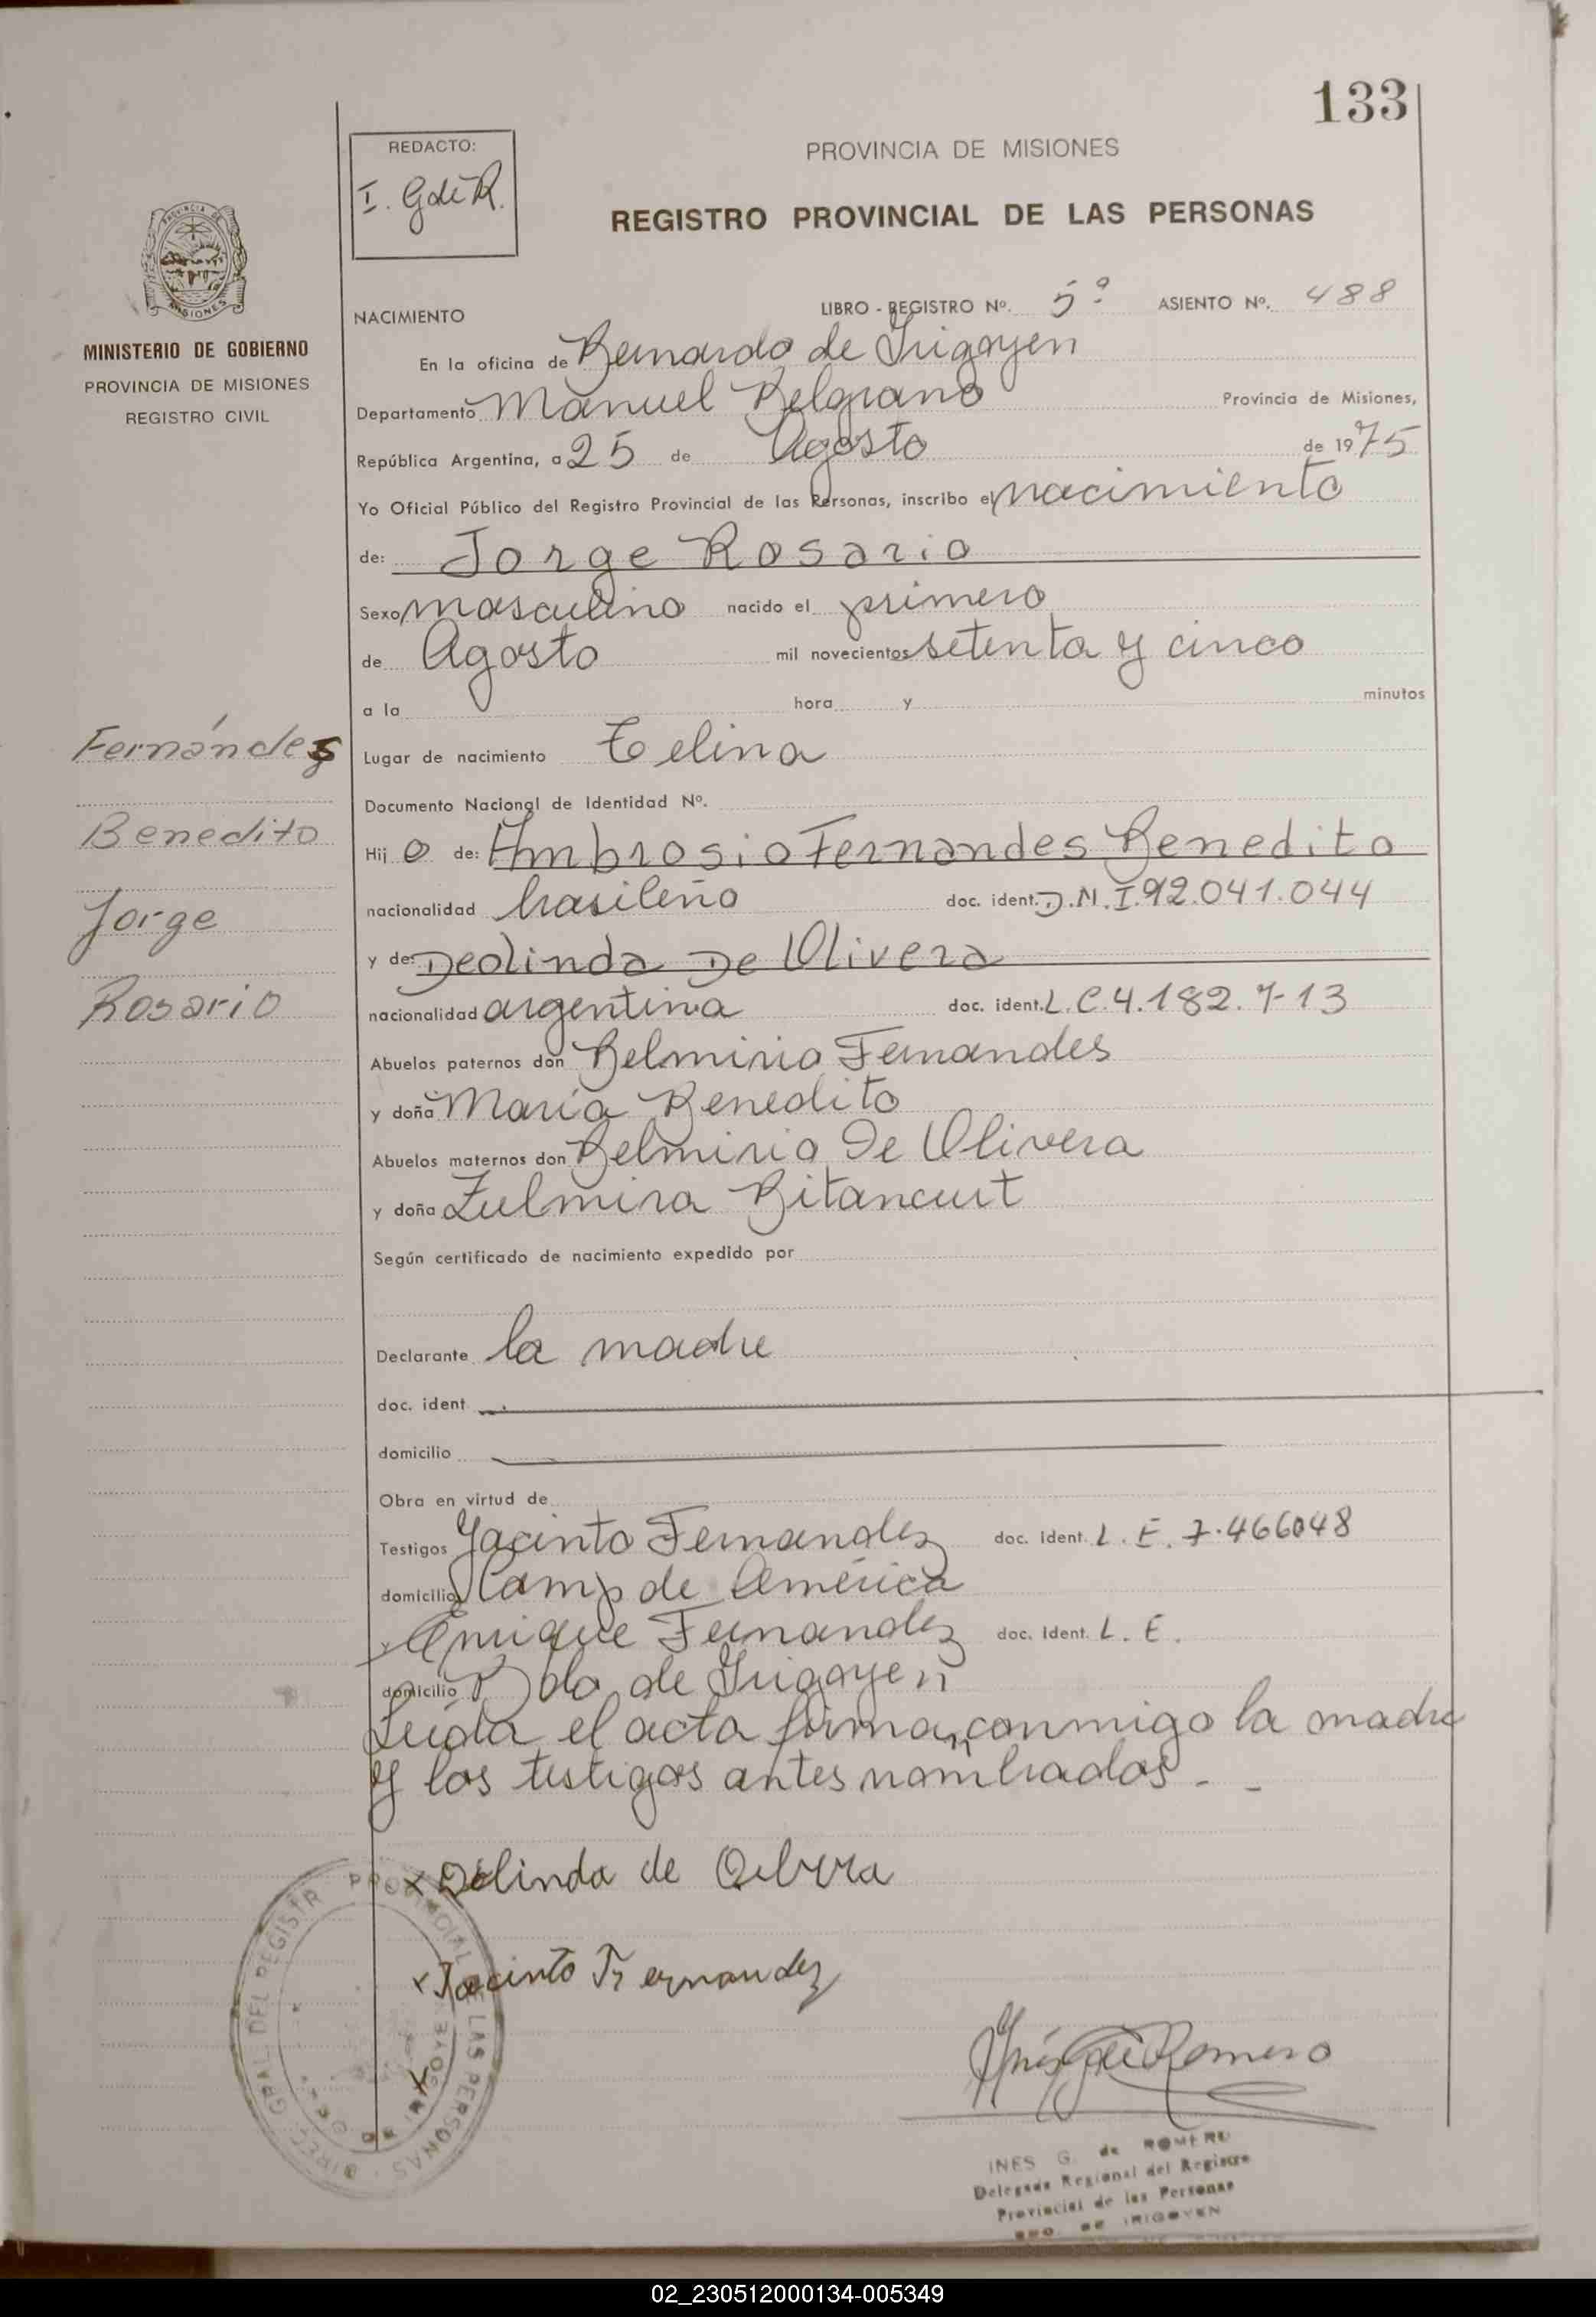 133
REDACTO:
I. G de R.
PROVINCIA DE MISIONES
REGISTRO PROVINCIAL DE LAS PERSONAS
PROVINCIA DE
MISIONES
MINISTERIO DE GOBIERNO
PROVINCIA DE MISIONES
REGISTRO CIVIL
NACIMIENTO LIBRO - REGISTRO Nº. 5º ASIENTO Nº. 488
En la oficina de Bernardo de Irigoyen
Departamento Manuel Belgrano Provincia de Misiones,
República Argentina, a 25 de Agosto de 1975
Yo Oficial Público del Registro Provincial de las Personas, inscribo el nacimiento
de: Jorge Rosario
Sexo masculino nacido el primero
de Agosto mil novecientos setenta y cinco
a la hora y minutos
Lugar de nacimiento Celina
Documento Nacional de Identidad Nº.
Fernández
Benedito
Jorge
Rosario
Hij o de: Ambrosio Fernandes Benedito
nacionalidad brasileño doc. ident. D.N.I. 92.041.044
y de: Deolinda De Olivera
nacionalidad argentina doc. ident. L.C. 4.182.713
Abuelos paternos don Belmirio Fernandes
y doña María Benedito
Abuelos maternos don Belmirio De Olivera
y doña Zulmira Bitancurt
Según certificado de nacimiento expedido por
Declarante la madre
doc. ident
domicilio
Obra en virtud de
Testigos Jacinto Fernandez doc. ident. L. E. 7.466048
domicilio Camp de América
Enrique Fernandez doc. ident. L. E.
domicilio Bdo de Irigoyen
Leída el acta firman conmigo la madre
y los testigos antes nombrados. -
x Dolinda de Olivera
x Jacinto Fernandez
x
Inés G de Romero
DIREC. GRAL. DEL REGISTR PROVINCIAL LAS PERSONAS
INES G. de ROMERO
Delegada Regional del Registro
Provincial de las Personas
BDO. DE IRIGOYEN
02_230512000134-005349